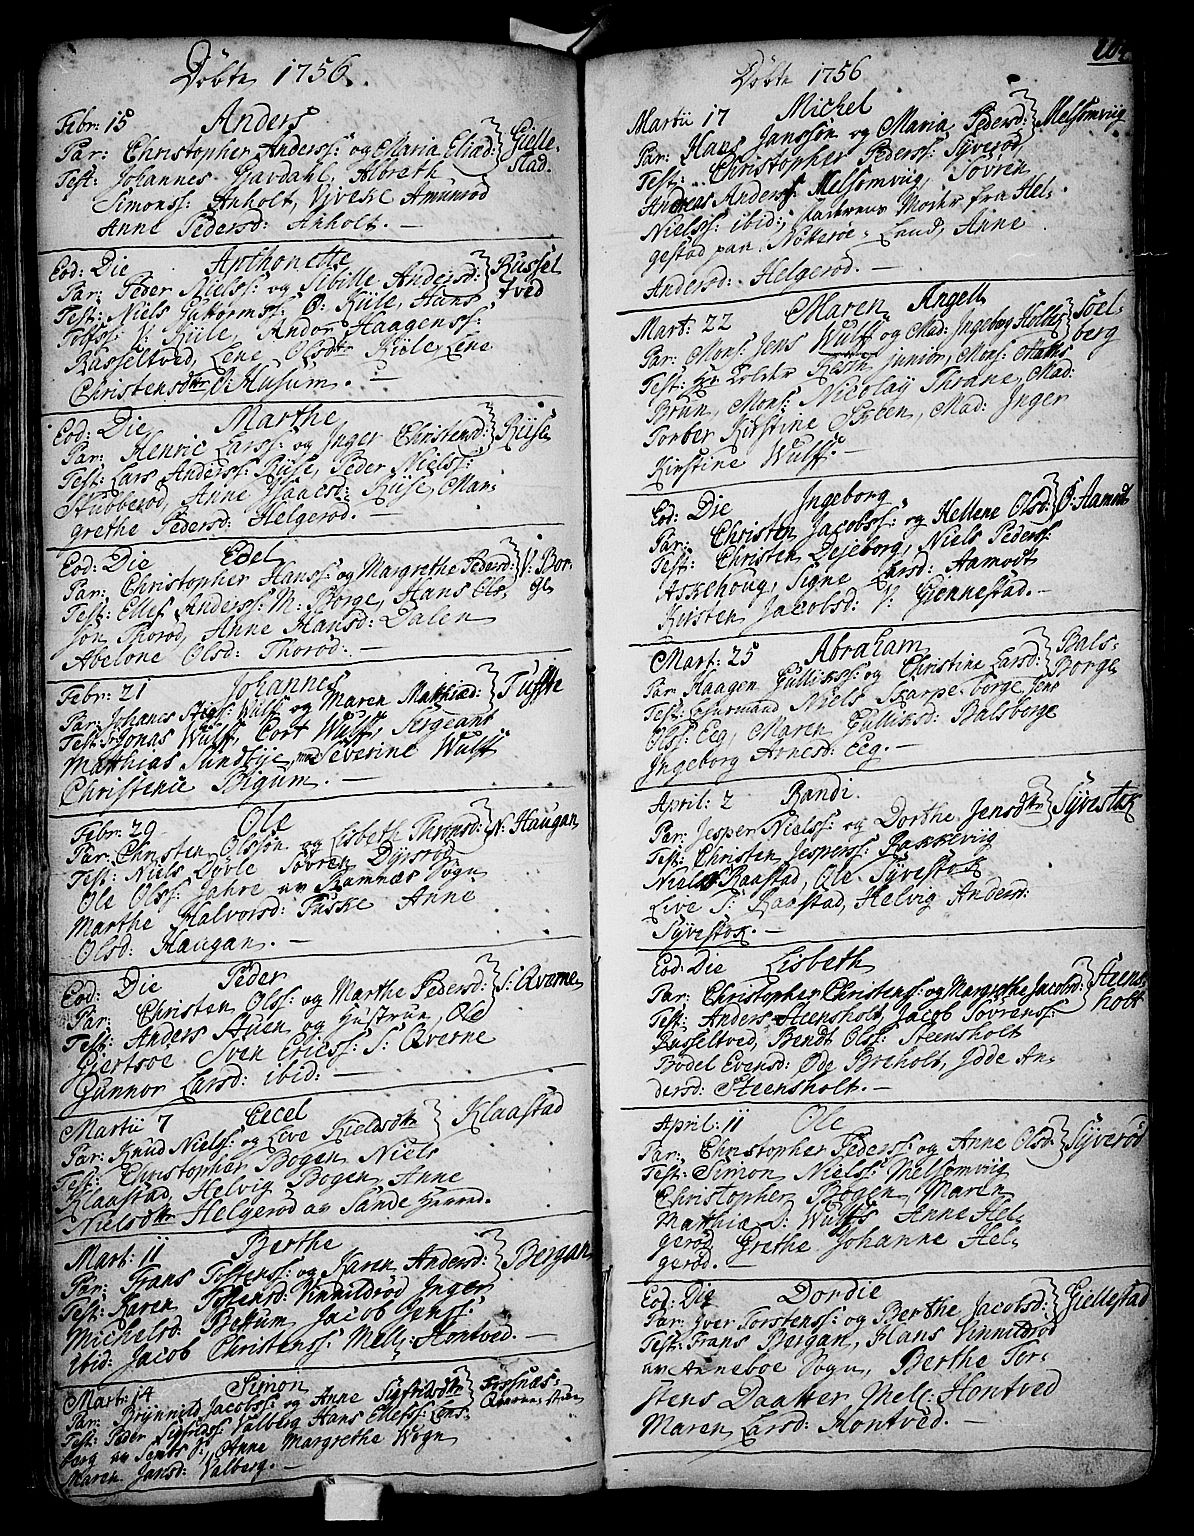 Döbte 1756.
Febr: 15 Anders
Par: Christopher Anderss: og Maria Eliæd: Gielle-
stad.
Test: Johannes Havdahl, Albreth
Simonss: Anholt, Viveke Amunrød
Anne Pedersd: Anholt. —
Eod: Die Anthonette
Par: Peder Nielss: og Sibille Andersd: Russel
tved
Test: Niels Jakormss: Ø: Kiile, Hans
Tolfss: V: Kiile, Andor Haagenss:
Russeltved, Lene Olsdtr Kiile, Lene
Christensdtr Ø: Husum. —
Eod: Die Marthe
Par: Henric Larss: og Inger Christensd: Riise
Test: Lars Anderss: Riise, Peder Nielss:
Stubberød, Anne Isaacsd: Riise, Mar-
grethe Pedersd: Helgerød.
Eod: Die Edel
Par: Christopher Hanss: og Margrethe Pedersd: V: Bor-
ge
Test: Ellef Anderss: M: Borge, Hans Ols-
søn Thorød, Anne Hansd: Dalen
Abelone Olsd: Thorød: —
Febr: 21 Johannes
Par: Johanes Wulf og Maren Mathiæd: Tufte
Test: Jonas Wulf, Cort Wulf, Sergeant
Matthias Sundbye, Severine Wulf
Christenie Bigum. —
Febr: 29 Ole
Par: Christen Olssøn og Lisbeth Thronsd: N: Haugan
Test: Niels Døvle Søvren Dyrsrød
Ole Olss: Jahre av Ramnæs Sogn
Marthe Halvorsd: Fuske Anne
Olsd: Haugan. —
Eod: Die Peder
Par: Christen Olss: og Marthe Pedersd: S: Qverne
Test: Anders Stuen og Hustrue, Ole
Giertsøe Sven Ericss: S: Qverne
Gunnor Larsd: ibid: —
Martii 7 Cecel
Par: Knud Nielss: og Live Kieldsdtr Klaastad
Test: Christopher Bogen Niels
Klaastad, Helvig Bogen, Anne
Nielsdtr Helgerød av Sande
Mart: 11 Berthe
Par: Frans Tostenss: og Karen Andersd: Bergan
Test: Karen Tostensd: Vinnildrød Inger
Michelsd: Bettum, Jacob Jenss:
ibid: Jacob Christenss: Mell: Hontved. —
Mart: 14 Simon
Par: Brynnild Jacobss: og Anne Sigfridsdtr Fossnæs
Test: Peder Sigfridss: Valberg Hans Ellefss: Lens-
berg av Sembs S:, Anne Margrethe Wogn
Maren Jansd: Valberg. —
Döbte 1756
Martii 17 Michel
Par: Hans Janssøn og Maria Pedersd: Melsomviig
Test: Christopher Pederss: Syverød
Andreas Anderss: Melsomviig, Søvren
Nielss: ibid:, Faderens Moder fra Hel-
gestad paa Nøtterøe-Land, Anne
Andersd: Helgerød. —
Mart: 22 Maren Angell
Par: Mons: Jens Wulff og Mad: Ingebor Holter Soel-
berg
Test: Hr: Junior, Mons: Mathis
Brun, Mons: Nicolaÿ Thrane, Mad:
Torber Kirstine Osten, Mad: Inger
Kirstine Wulff. —
Eod: Die Ingeborg
Par: Christen Jacobss: og Hellene Olsd: Ø: Aamodt
Test: Christen Dejeborg, Niels Pederss:
Askehoug, Signe Larsd: Aamodt
Kirsten Jacobsd: V: Giennestad. —
Mart: 25 Abraham
Par: Haagen Gullikss: og Christine Larsd: Bals-
Borge
Test: Niels Skarpe-borge Jens
Olss: Eeg, Maren Gulliksd: Balsborge
Ingeborg Arnesd: Eeg. —
April: 2 Randi.
Par: Jesper Nielss: og Dorthe Jensdtr Syvestok
Test: Christen Jesperss: Bakkeviig
Niels Raastad, Ole Syvestok
Live S: Raastad, Helvig Andersd:
Syvestok. —
Eod: Die Lisbeth
Par: Christopher Christenss: og Margrethe Jacobsd: Steens-
holt
Test: Anders Steensholt, Jacob Søvrenss:
Russeltved, Brendt Olss: Steensholt
Bodel Evensd: Øde Breholt, Idde An-
dersd: Steensholt. —
April: 11 Ole
Par: Christopher Pederss: og Anne Olsd: Syverød
Test: Simon Nielss: Melsomviig
Christopher Bogen Maren
Matthiæ D: Wulfs Anne Hel-
gerød Grethe Johanne Hel-
gerød. —
Eod: Die Dordie
Par: Iver Torstenss: og Berthe Jacobsd: Giellestad
Test: Frans Bergan, Hans Vinnildrød
av Anneboe Sogn, Berthe Tor-
stens Daatter Mell: Hontved
Maren Larsd: Hontved. —